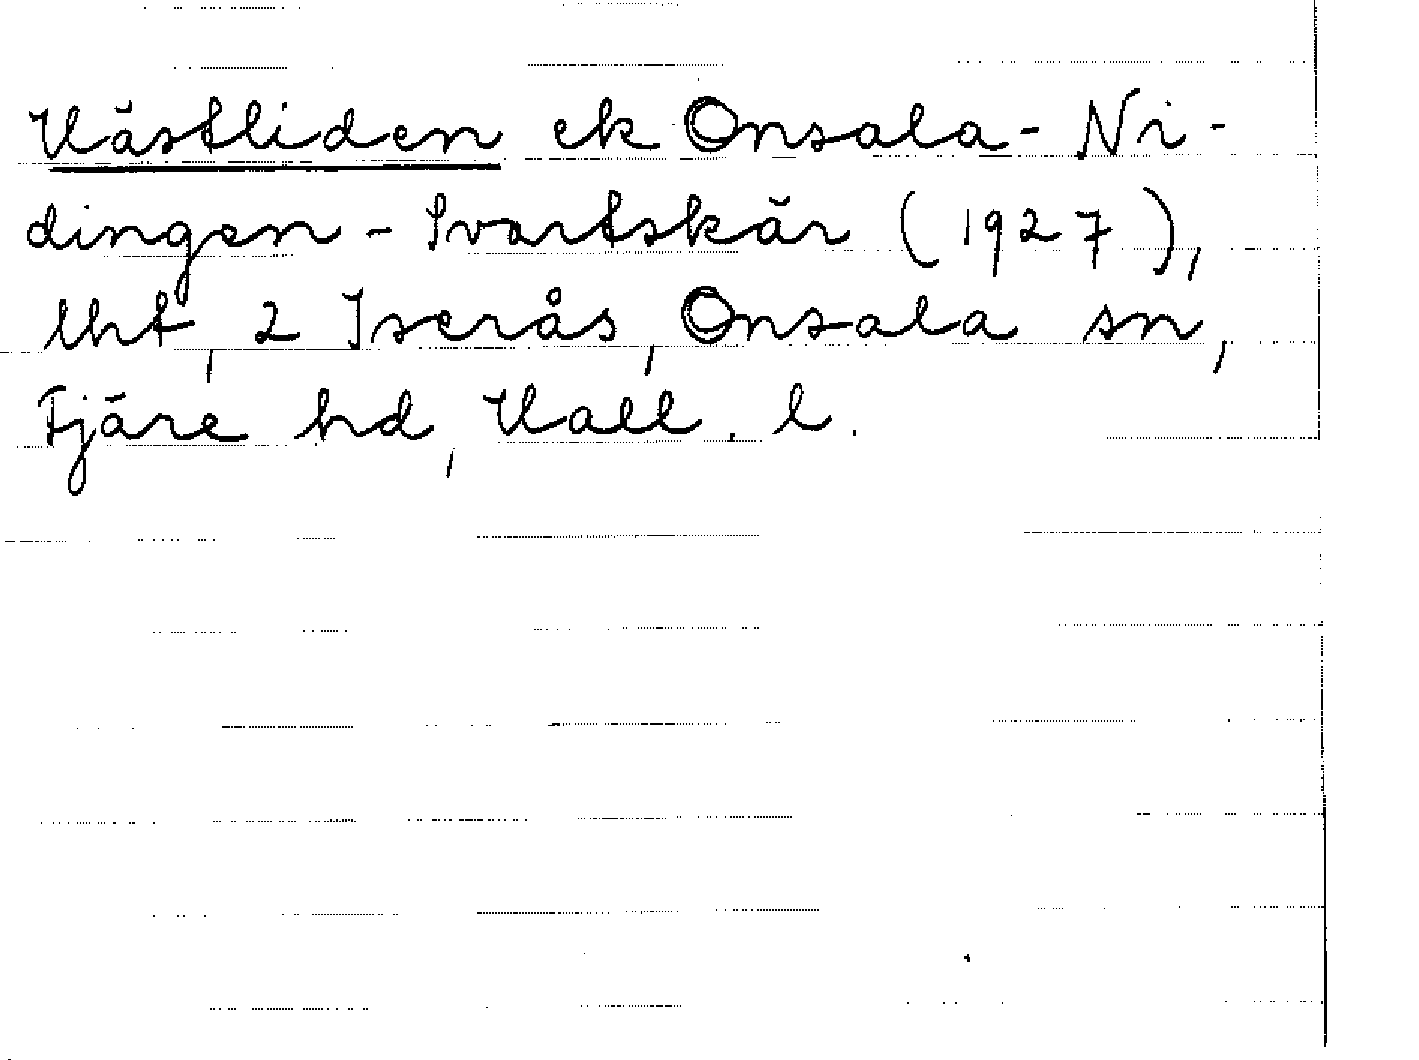 Västliden ek Onsala - Ni-
dingen - Svartskär (1927),
lht, 2 Iserås, Onsala sn,
Fjäre hd, Hall. l.